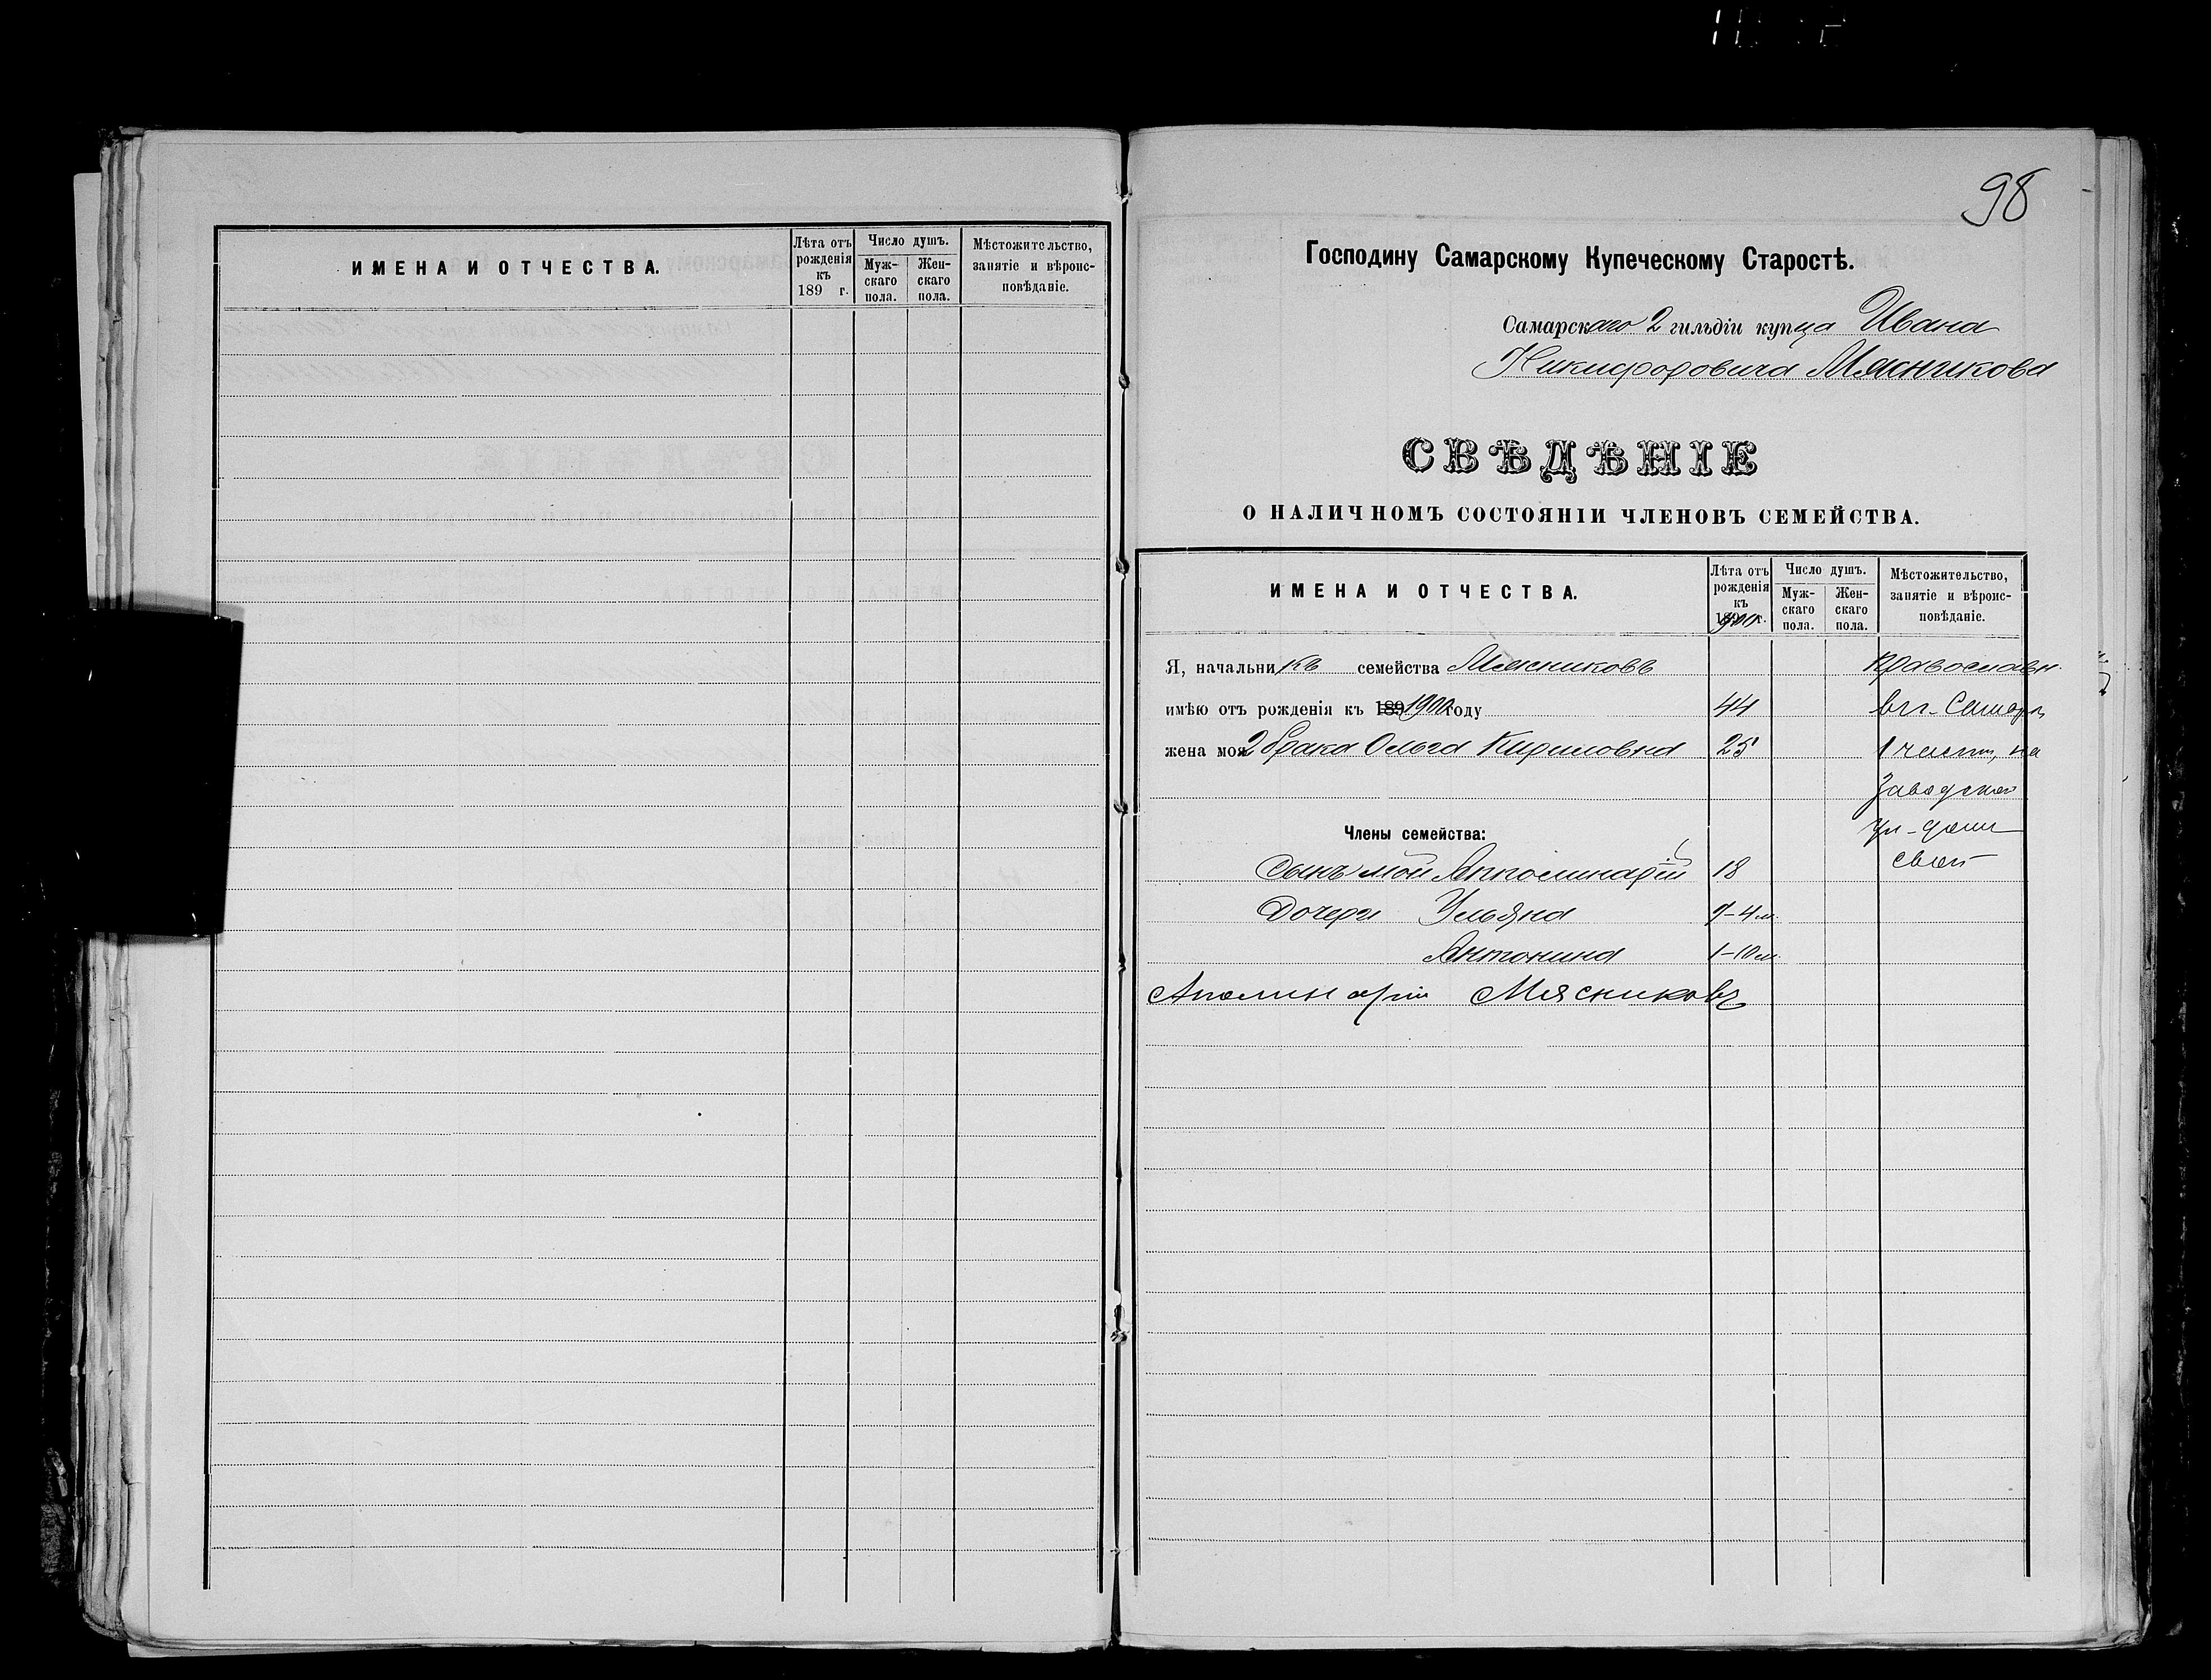 ИМЕНА И ОТЧЕСТВА.
Лѣта отъ рожденія къ 189 г.
Число душъ.
Мужскаго пола.
Женскаго пола.
Мѣстожительство, занятіе и вѣроисповѣданіе.
98
Господину Самарскому Купеческому Старостѣ.
Самарскаго 2 гильдіи купца Ивана
Никифоровича Мясникова
СВѢДѢНІЕ
О НАЛИЧНОМЪ СОСТОЯНІИ ЧЛЕНОВЪ СЕМЕЙСТВА.
ИМЕНА И ОТЧЕСТВА.
Лѣта отъ рожденія къ 1900 г.
Число душъ.
Мужскаго пола.
Женскаго пола.
Мѣстожительство, занятіе и вѣроисповѣданіе.
Я, начальникъ семейства Мясниковъ православн.
имѣю отъ рожденія къ 189 1900 году 44 в г. Самарѣ
жена моя 2 брака Ольга Кириловна 25 1 части, на
Заводской
Члены семейства: ул. домъ
Сынъ мой Апполинарій 18 свой
Дочери Ульяна 9-4 м.
Антонина 1-10 м.
Аполинарій Мясниковъ